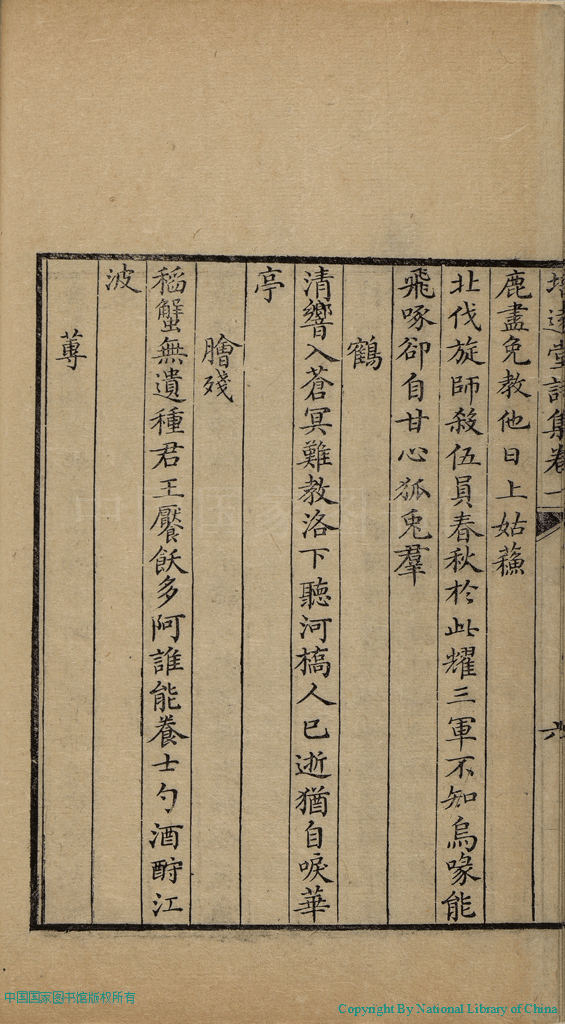 培遠堂詩集卷一
六
鹿盡免教他日上姑蘇
北伐旋師殺伍員春秋於此耀三軍不知烏喙能
飛啄卻自甘心狐兎羣
鶴
清響入蒼冥難教洛下聽河橋人已逝猶自唳華
亭
膾殘
稻蟹無遺種君王饜飫多阿誰能養士勺酒酹江
波
蓴
中国国家图书馆版权所有
Copyright By National Library of China